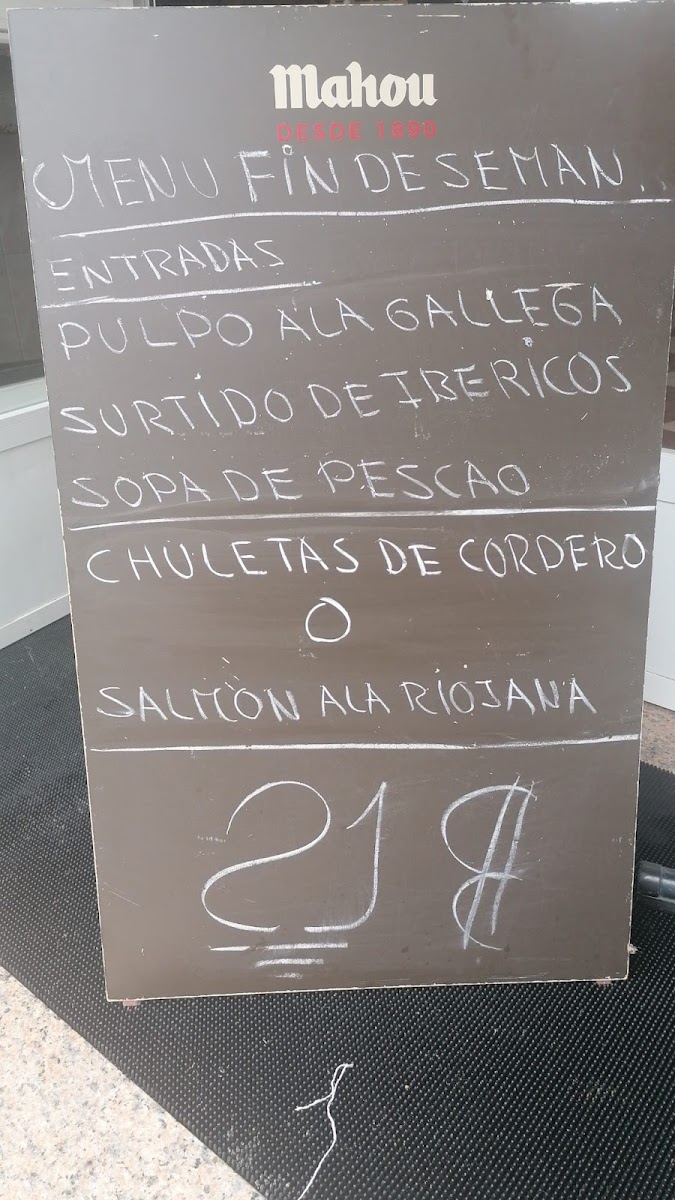 Mahou
DESDE 1890
MENU FIN DE SEMAN..
ENTRADAS
PULPO A LA GALLEGA
SURTIDO DE IBERICOS
SOPA DE PESCAO
CHULETAS DE CORDERO
O
SALMÒN A LA RIOJANA
21